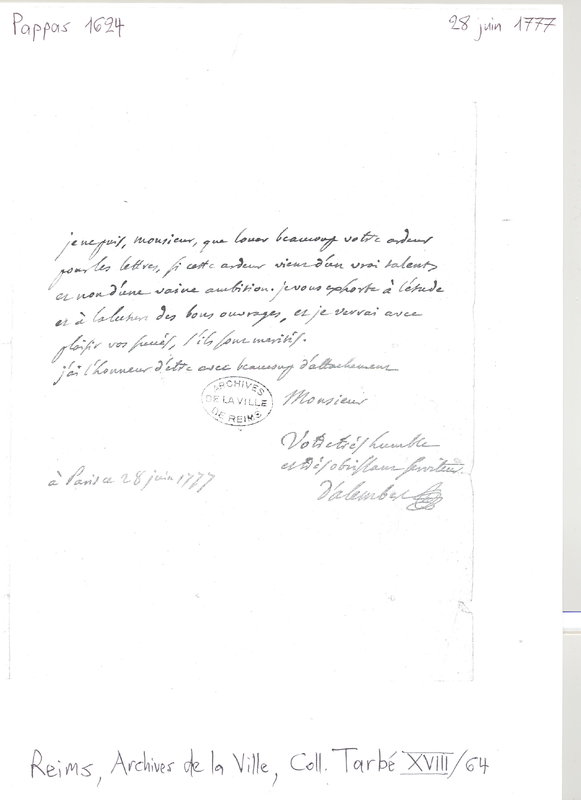 Pappas 1624
28 juin 1777
je ne puis, monsieur, que louer beaucoup votre ardeur
pour les lettres, si cette ardeur vient d'un vrai talent,
et non d'une vaine ambition. je vous exhorte à l'étude
et à la lecture des bons ouvrages, et je verrai avec
plaisir vos succès, s'ils sont mérités.
j'ai l'honneur d'être avec beaucoup d'attachement
Monsieur
ARCHIVES
DE LA VILLE
DE REIMS
Votre très humble
et très obéissant serviteur
à Paris ce 28 juin 1777
D'alembert
Reims, Archives de la Ville, Coll. Tarbé XVIII/64